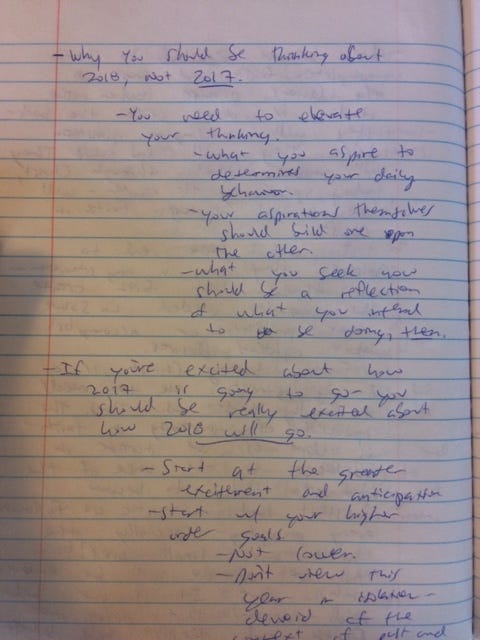 - Why you should be thinking about
2018, not 2017.
- You need to elevate
your thinking.
- what you aspire to
determines your daily
behavior.
- your aspirations themselves
should build one upon
the other.
- what you seek now
should be a reflection
of what you intend
to be doing, then.
- If you're excited about how
2017 is going to go - you
should be really excited about
how 2018 will go.
- Start at the greater
excitement and anticipation
- start w/ your higher
order goals.
- Not lower.
- Don't view this
year in isolation -
devoid of the
context of past and